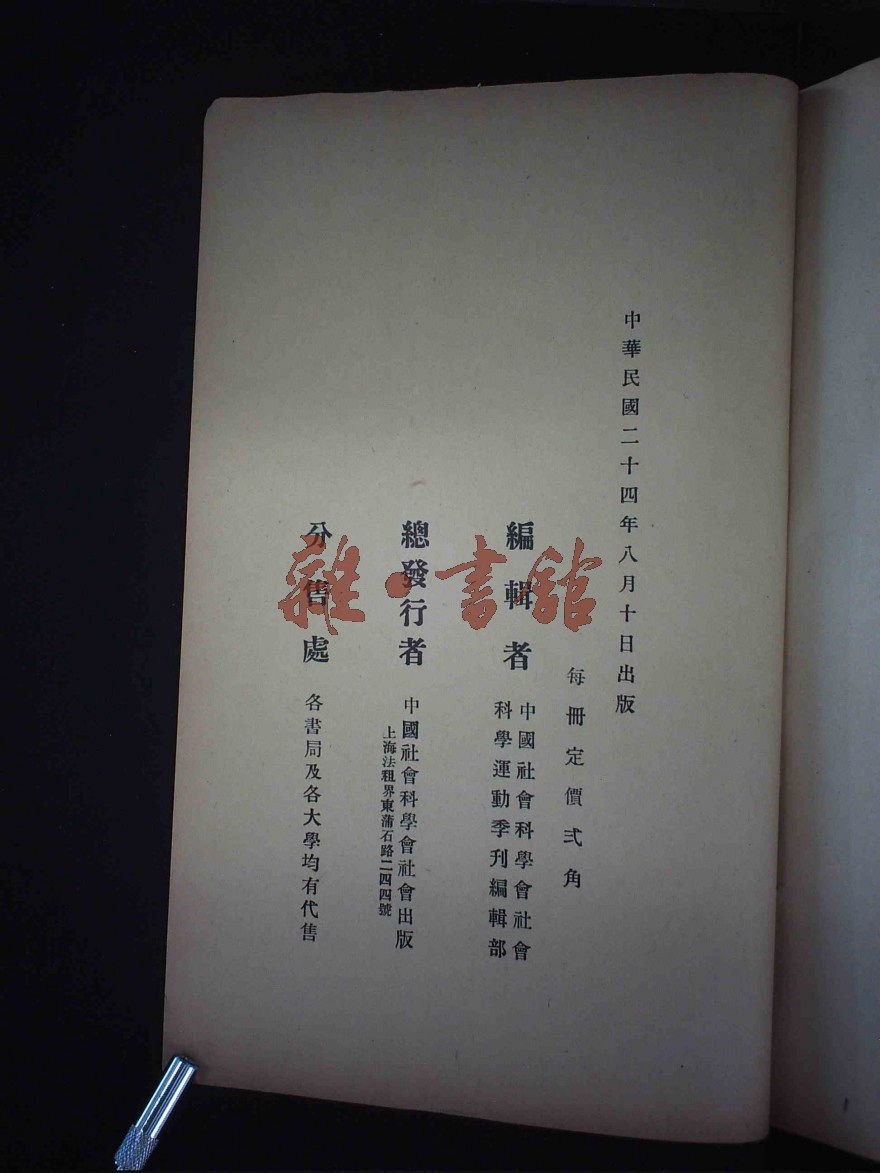 中華民國二十四年八月十日出版
每冊定價弍角
編輯者
中國社會科學會社會
科學運動季刊編輯部
總發行者
中國社會科學會社會出版
上海法租界東蒲石路二四四號
分售處
各書局及各大學均有代售
雜·書館